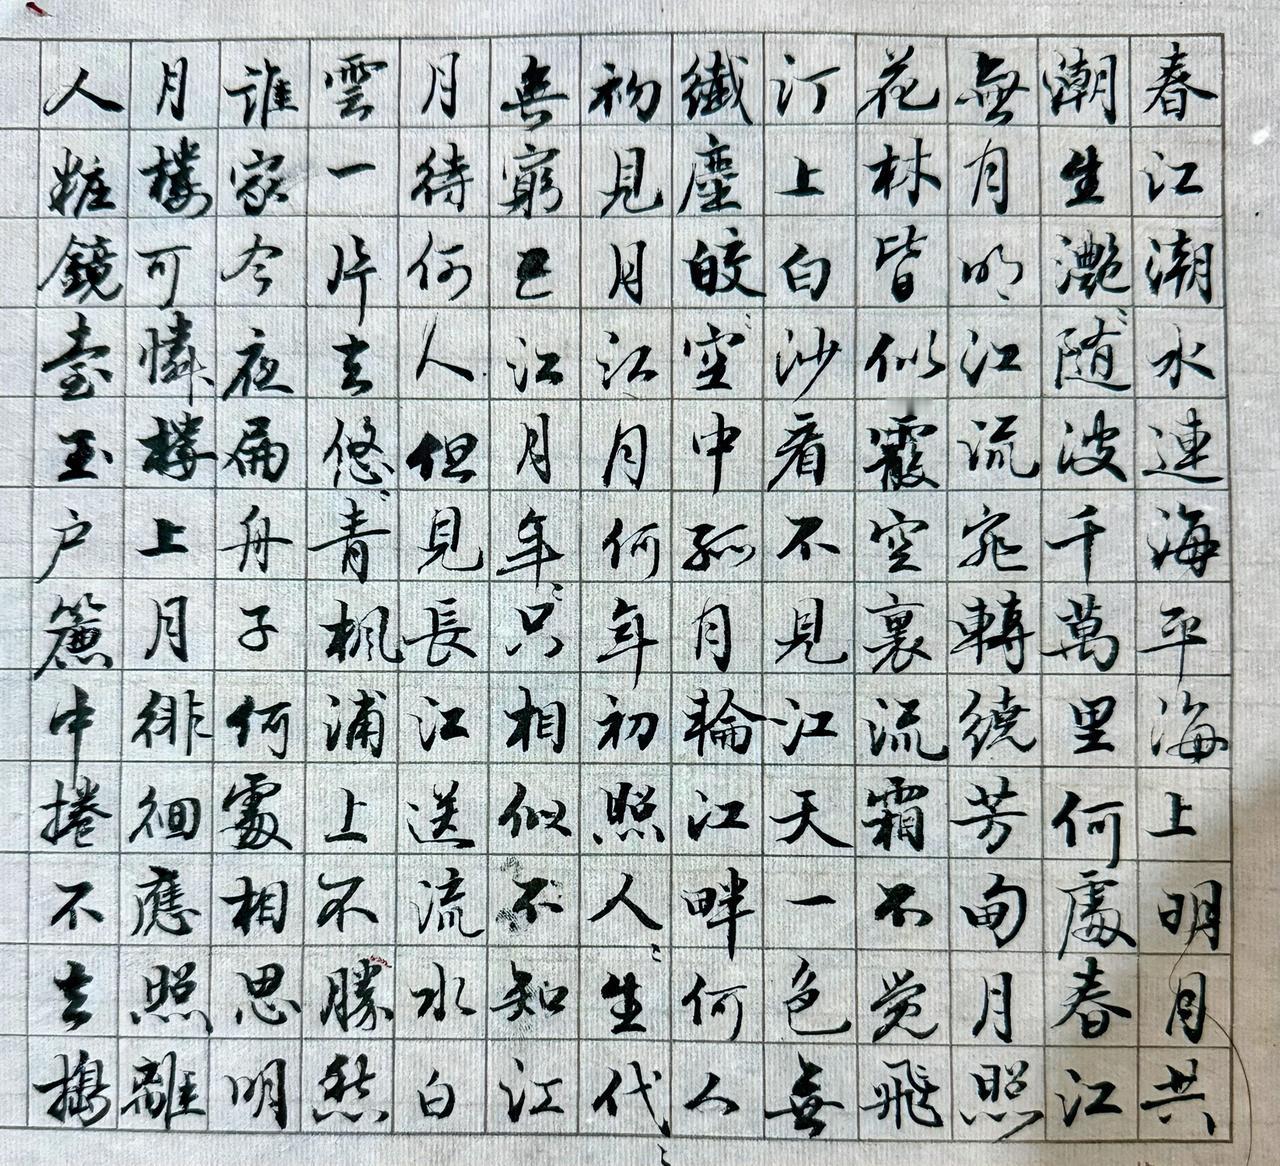 春江潮水連海平海上明月共
潮生灩〻随波千萬里何處春江
無月明江流宛轉繞芳甸月照
花林皆似霰空裏流霜不觉飛
汀上白沙看不見江天一色無
纖塵皎〻空中孤月輪江畔何人
初見月江月何年初照人〻生代〻
無窮已江月年〻只相似不知江
月待何人但見長江送流水白
雲一片去悠〻青楓浦上不勝愁
誰家今夜扁舟子何處相思明
月樓可憐樓上月徘徊應照離
人粧鏡臺玉户簾中捲不去搗